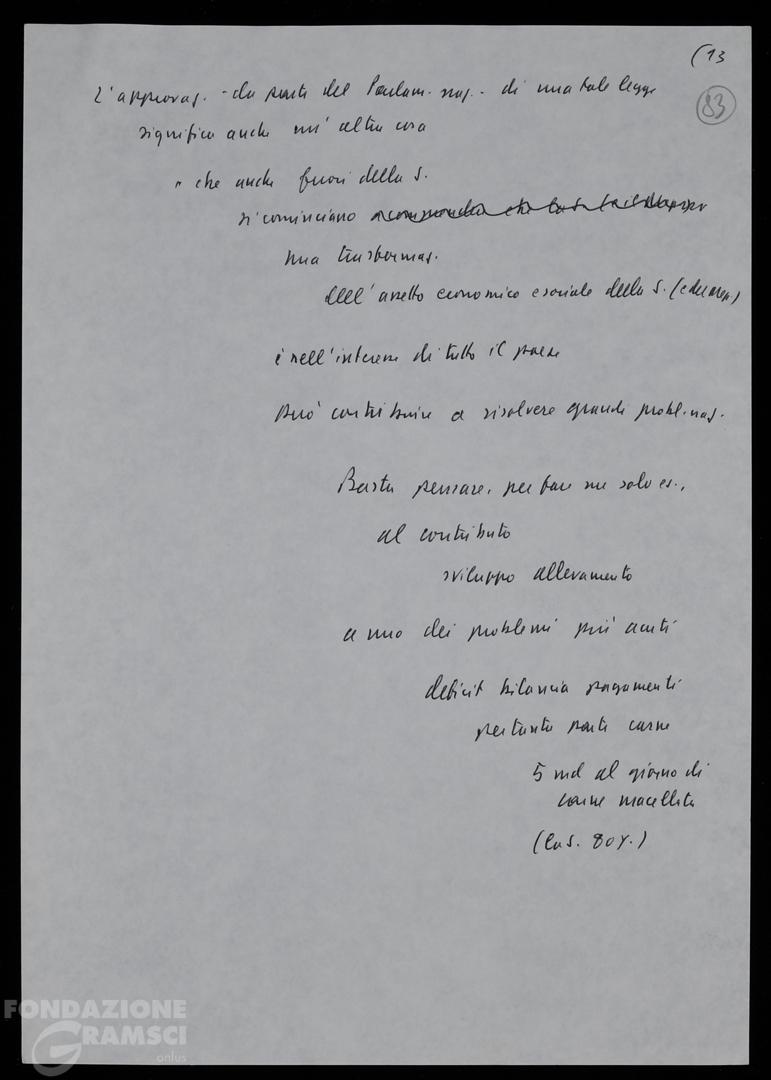 (13
83
L'approvaz. - da parte del Parlam. naz. - di una tale legge
significa anche un'altra cosa
è che anche fuori della S.
si cominciano
una trasformaz.
dell'assetto economico e sociale della S. (e del Mezz.)
è nell'interesse di tutto il paese
Può contribuire a risolvere grandi probl. naz.
Basta pensare, per fare un solo es.,
al contributo
sviluppo allevamento
a uno dei problemi più acuti
deficit bilancia pagamenti
per tanta parte carne
5 md al giorno di
carne macellata
(la S. 80%)
FONDAZIONE
GRAMSCI
onlus